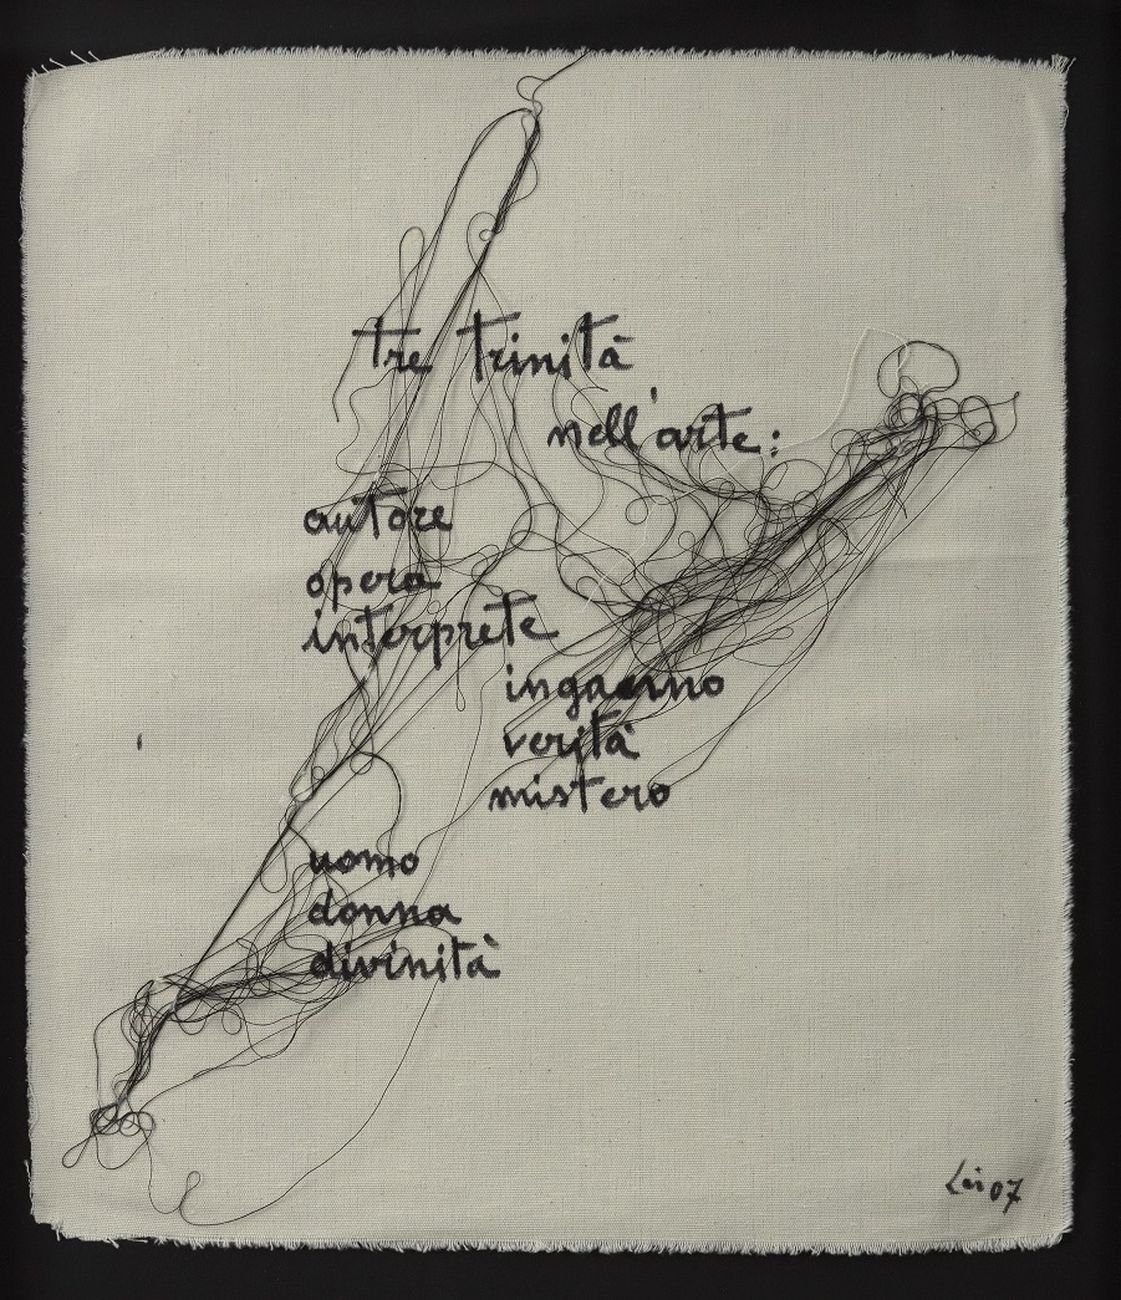 tre trinità
nell'arte:
autore
opera
interprete
inganno
verità
mistero
uomo
donna
divinità
Lai 07